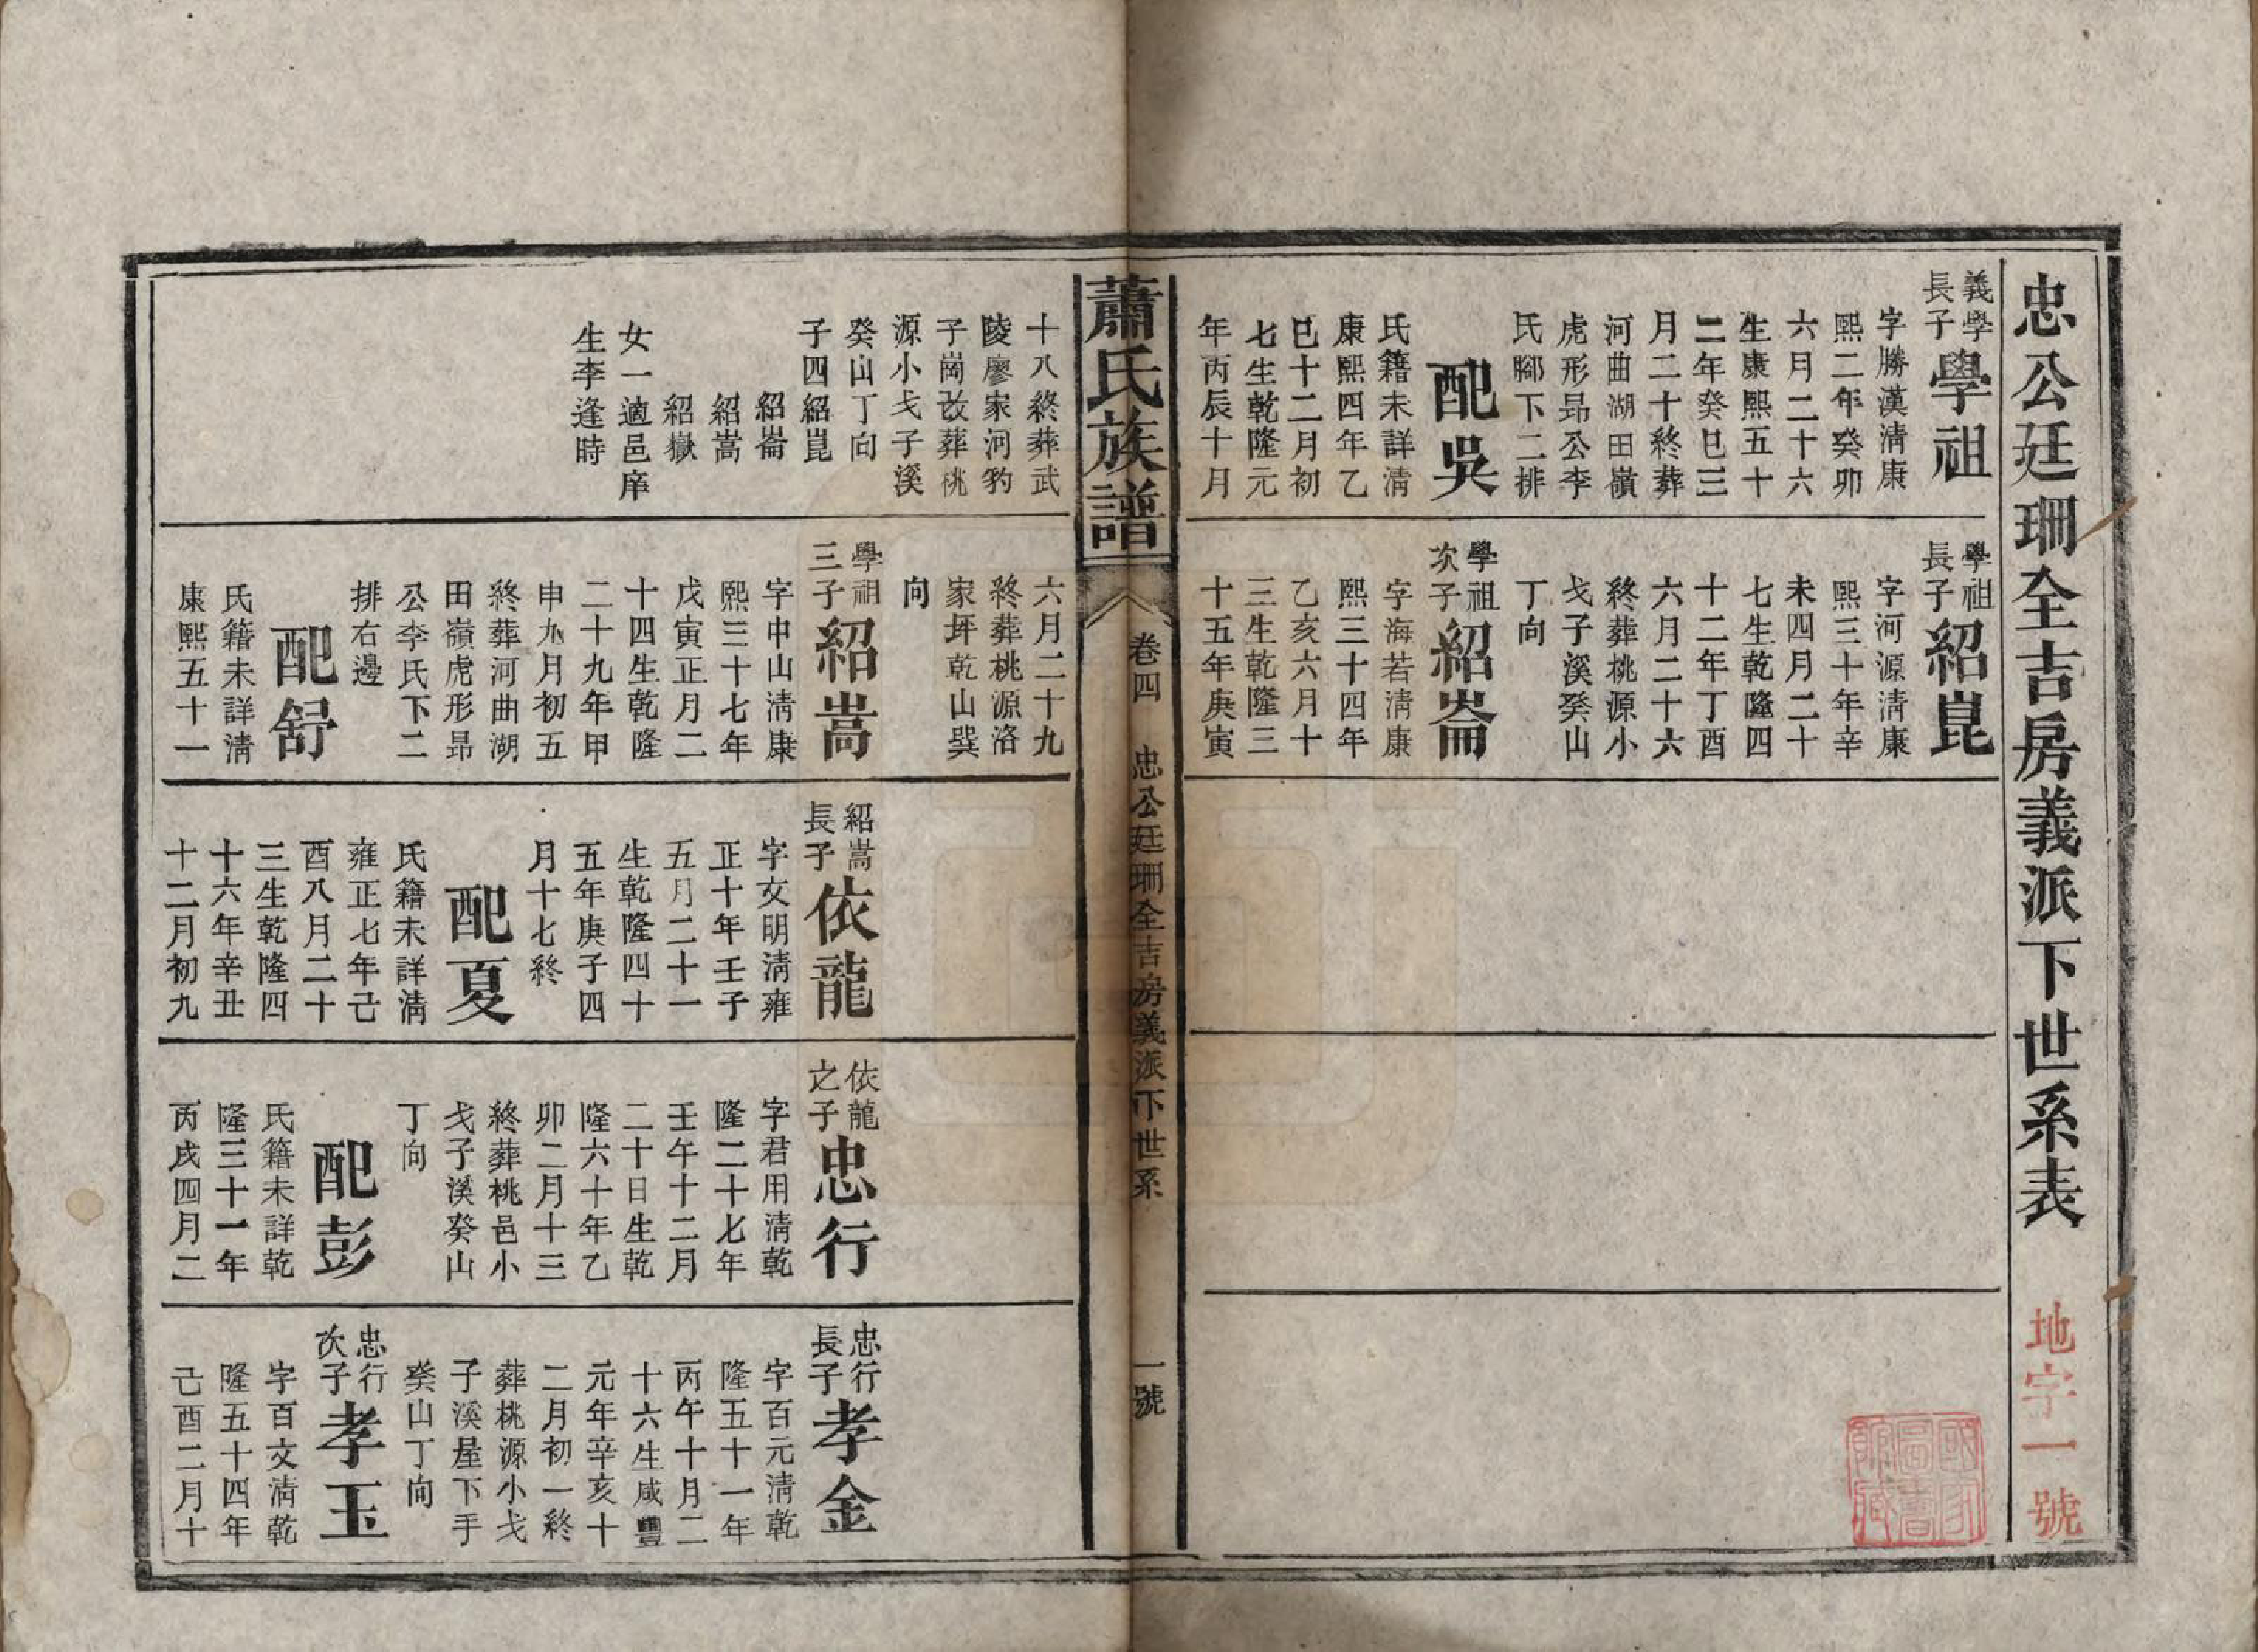 忠公廷珊全吉房義派下世系表
地字一號
義學
長子
學祖
字勝漢清康
熙二年癸卯
六月二十六
生康熙五十
二年癸巳三
月二十終葬
河曲湖田嶺
虎形昻公李
氏腳下二排
配吳
氏籍未詳清
康熙四年乙
巳十二月初
七生乾隆元
年丙辰十月
學祖
長子
紹崑
字河源清康
熙三十年辛
未四月二十
七生乾隆四
十二年丁酉
六月二十六
終葬桃源小
戈子溪癸山
丁向
學祖
次子
紹崙
字海若清康
熙三十四年
乙亥六月十
三生乾隆三
十五年庚寅
蕭氏族譜
卷四
忠公廷珊全吉房義派下世系
一號
十八終葬武
陵廖家河豹
子崗改葬桃
源小戈子溪
癸山丁向
子四紹崑
紹崙
紹嵩
紹嶽
女一適邑庠
生李逢時
六月二十九
終葬桃源洛
家坪乾山巽
向
學祖
三子
紹嵩
字中山清康
熙三十七年
戊寅正月二
十四生乾隆
二十九年甲
申九月初五
終葬河曲湖
田嶺虎形昻
公李氏下二
排右邊
配舒
氏籍未詳清
康熙五十一
紹嵩
長子
依龍
字文明清雍
正十年壬子
五月二十一
生乾隆四十
五年庚子四
月十七終
配夏
氏籍未詳清
雍正七年己
酉八月二十
三生乾隆四
十六年辛丑
十二月初九
依龍
之子
忠行
字君用清乾
隆二十七年
壬午十二月
二十日生乾
隆六十年乙
卯二月十三
終葬桃邑小
戈子溪癸山
丁向
配彭
氏籍未詳乾
隆三十一年
丙戌四月二
忠行
長子
孝金
字百元清乾
隆五十一年
丙午十月二
十六生咸豐
元年辛亥十
二月初一終
葬桃源小戈
子溪屋下手
癸山丁向
忠行
次子
孝玉
字百文清乾
隆五十四年
己酉二月十